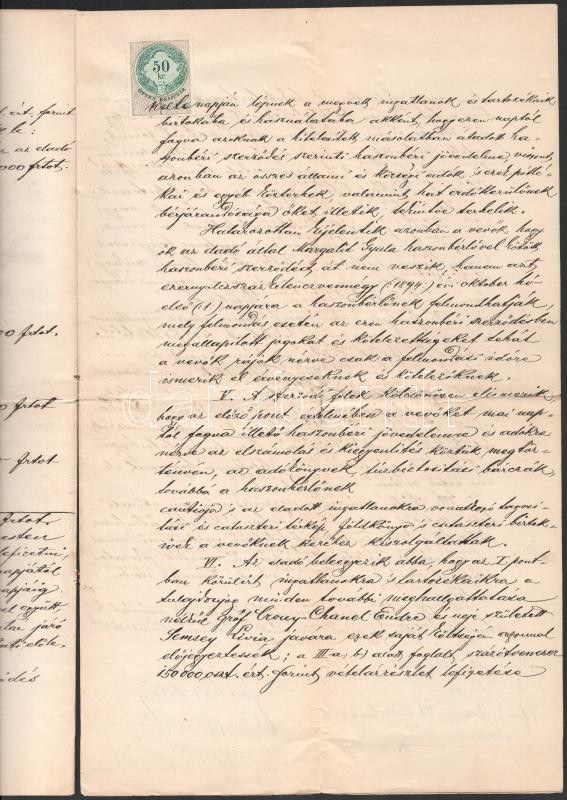 ért. forint
az eladó
000 frtot.
frtot.
frtot
frtot
frtot.
napjától
napjáig
el együtt
járó
50
kr.
ÖTVEN KRAJCZÁR
napján lépnek a megvett ingatlanok és tartozékaik
birtokába és használatába akként, hogy ezen naptól
fogva azoknak a hitelesített másolatban átadott ha-
szonbéri szerződés szerinti haszonbéri jövedelme, viszont
azonban az összes állami és községi adók, s ezek pótlé-
kai és egyéb közterhek, valamint hat erdőkerülőnek
bérjárandósága őket illetik, terhelik.
Határozottan kijelentik azonban a vevők, hogy
ők az eladó által Margalit Gyula haszonbérlővel kötött
haszonbéri szerződést át nem veszik, hanem azt
ezernyolczszázkilenczvennegy (1894) évi október hó
első (1) napjára a haszonbérlőnek felmondhatják,
mely felmondás esetén az ezen haszonbéri szerződésben
megállapított jogokat és kötelezettségeket tehát
a vevők rájok nézve csak a felmondási időre
ismerik el érvényeseknek és kötelezőknek.
V. A szerződő felek kölcsönösen elismerik,
hogy az előző pont értelmében a vevőket mai nap-
tól fogva illető haszonbéri jövedelemre és adókra
nézve az elszámolás és kiegyenlítés köztük megtör-
ténvén, az adókönyvek, tűzbiztosítási bárczák,
továbbá a haszonbérlőnek
cautiója s az eladott ingatlanokra vonatkozó tagosí-
tási és cataszteri térkép, földkönyv s cataszteri birtok-
ívek a vevőknek kezéhez kiszolgáltattak.
VI. Az eladó beleegyezik abba, hogy az I. pont-
ban körülírt ingatlanokra s tartozékaikra a
tulajdonjog minden további meghallgattatása
nélkül Gróf Crouy-Chanel Endre és neje született
Semsey Livia javára ezek saját költségén azonnal
előjegyeztessék; a III-a. b) alatt foglalt százötvenezer
150000 oszt. ért. forint vételárrészlet lefizetése